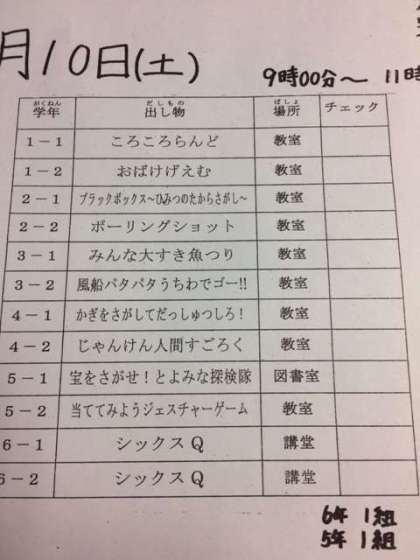 月10日(土)
9時00分〜 11時
がくねん だしもの ばしょ
学年 出し物 場所 チェック
1－1 ころころらんど 教室
1－2 おばけげえむ 教室
2－1 ブラックボックス～ひみつのたからさがし～ 教室
2－2 ボーリングショット 教室
3－1 みんな大すき魚つり 教室
3－2 風船パタパタうちわでゴー!! 教室
4－1 かぎをさがしてだっしゅつしろ！ 教室
4－2 じゃんけん人間すごろく 教室
5－1 宝をさがせ！とよみな探検隊 図書室
5－2 当ててみようジェスチャーゲーム 教室
6－1 シックスQ 講堂
6－2 シックスQ 講堂
6年 1組
5年 1組